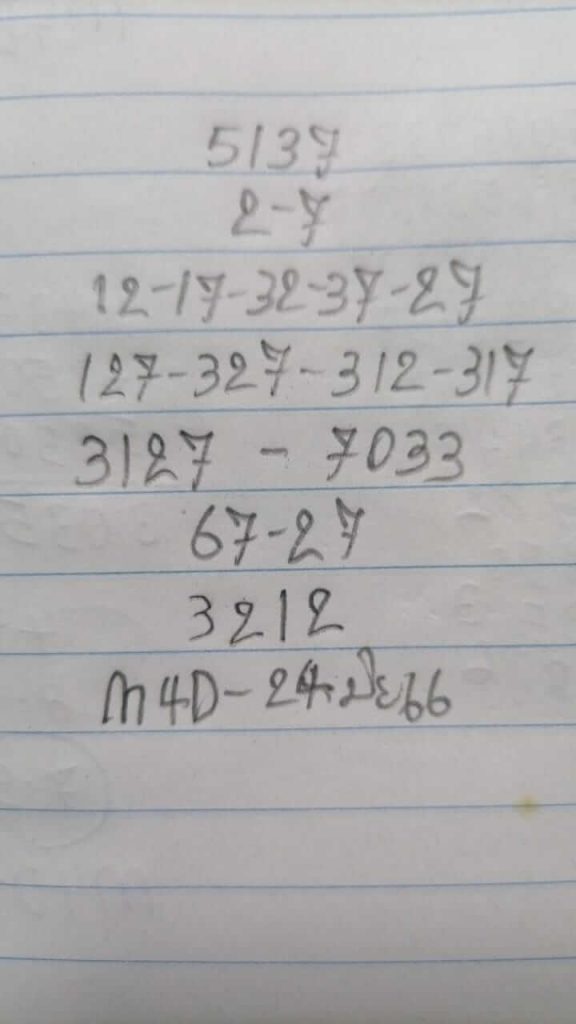 5137
2-7
12-17-32-37-27
127-327-312-317
3127 - 7033
67-27
3212
M4D-24
66